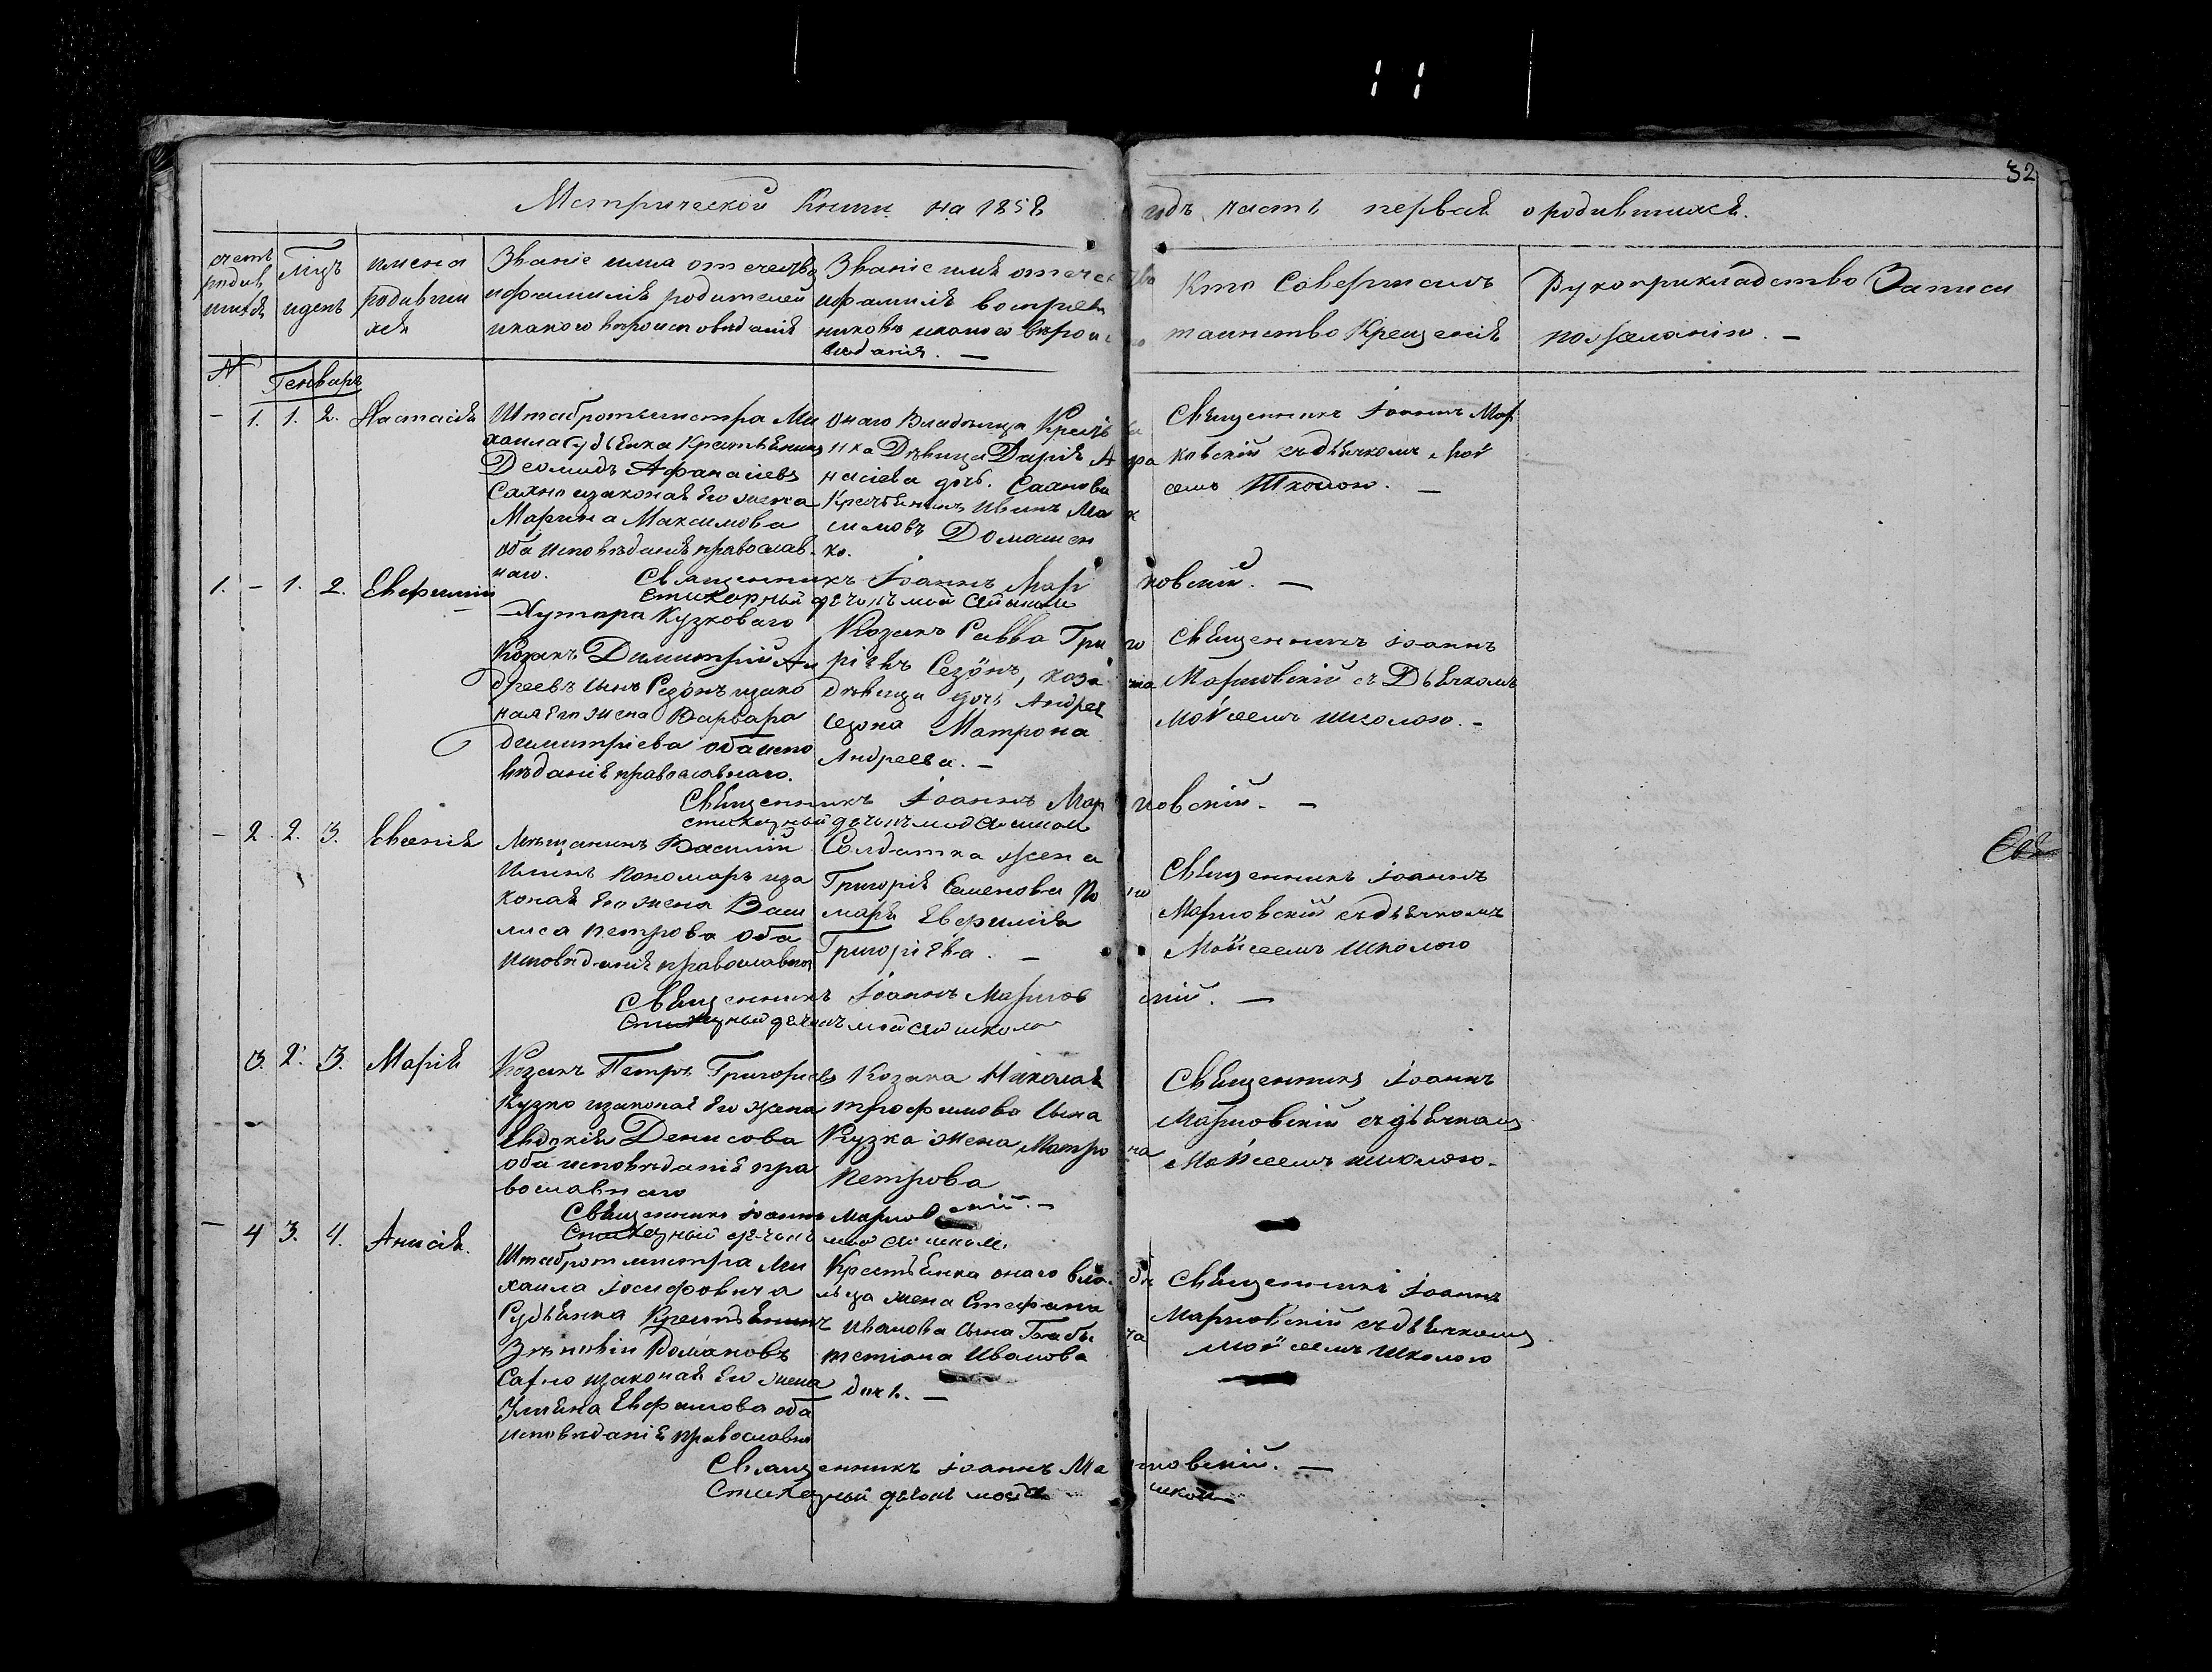 32
Метрической Книги на 1858 годъ часть первая о родившихся.
счетъ родив шихся
Мцъ и день
имена родивши хся
Званіе имя отечество
и фамилія родителей
и какого вероисповѣданія
Званіе имя отечество
и фамилія воспріем
никовъ и какого вѣроис
вѣданія. —
Кто Совершалъ
таинство Крещенія
Рукоприкладство Записи
по желанію. —
№
Генварь
— 1. 1. 2. Настасія
Штабротмистра Ми
хаила Крестьянинъ
Деомидъ Афанасіевъ
Сахно изаконая Его жена
Марина Максимова
оба исповѣданія православ
наго.
Онаго Владельца Крестья
нка Девица Дарія А
насіева дочь.
Крестьянинъ Иванъ Мак
симовъ Домашен
ко.
Священникъ Іоаннъ Мар
ковскій съ дьячкомъ Мой
сеемъ Школою. —
Священникъ Іоаннъ Марковскій. —
Стихарный дячокъ Мойсей школа
1. — 1. 2. Евфимій
Хутора Кузковаго
Козакъ Димитрій Ан
дреевъ сынъ изако
ная Его жена Варвара
Димитріева оба испо
вѣданія православнаго.
Козакъ Савва Григо
ріевъ Сезонъ, коза
девица дочь Андрея
Матрона
Андреева. —
Священникъ Іоаннъ
Марковскій съ Дьячкомъ
Мойсеемъ школою. —
Священникъ Іоаннъ Марковскій. —
Стихарный дячокъ Мойсей школа
— 2. 2. 3. Евгенія
Мещанинъ Василій
Пономарь иза
коная Его жена Васи
лиса Петрова оба
исповѣданія православнаго
Солдатка жена
Григорія Семенова По
маря Евфимія
Григоріева. —
Священникъ Іоаннъ
Марковскій съ дьячкомъ
Мойсеемъ Школою
Священникъ Іоаннъ Марковскій. —
Стихарный дячокъ Мойсей школа
3. 2. 3. Марія
Козакъ Петръ Григоріевъ
Кузко изаконая Его жена
Евдокія Денисова
оба исповѣданія пра
вославнаго
Козака Николая
Трофимова Сына
Кузка жена Матрона
Петрова
Священникъ Іоаннъ
Марковскій съ дьячкомъ
Мойсеемъ школою.
Священникъ Іоаннъ Марковскій. —
Стихарный дячокъ Мойсей школа
— 4 3. 4. Анисія.
Штабротмистра Ми
хаила Іосифовича
Крестьянинъ
Зѣновій Романовъ
Сахно изаконая Его жена
Ульяна Евфимова оба
исповѣданія православна
Крестьянка онаго вла
льца жена Стефана
Иванова Сына
Тетіана Иванова
дочь. —
Священникъ Іоаннъ
Марковскій съ дьячкомъ
Мойсеемъ Школою
Священникъ Іоаннъ Марковскій. —
Стихарный дячокъ Мойсей школа